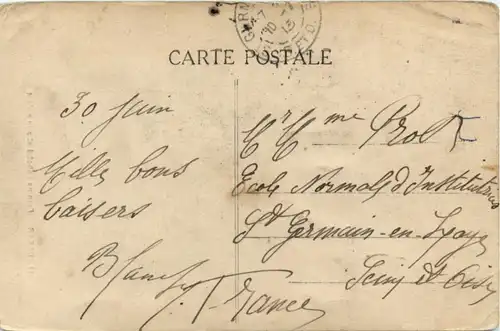 CARTE POSTALE
30 Juin
Mille bons
baisers
Blanche
Mr Mme Prot
Ecole Normale d'Institutrices
St Germain-en-Laye
Seine et Oise
France